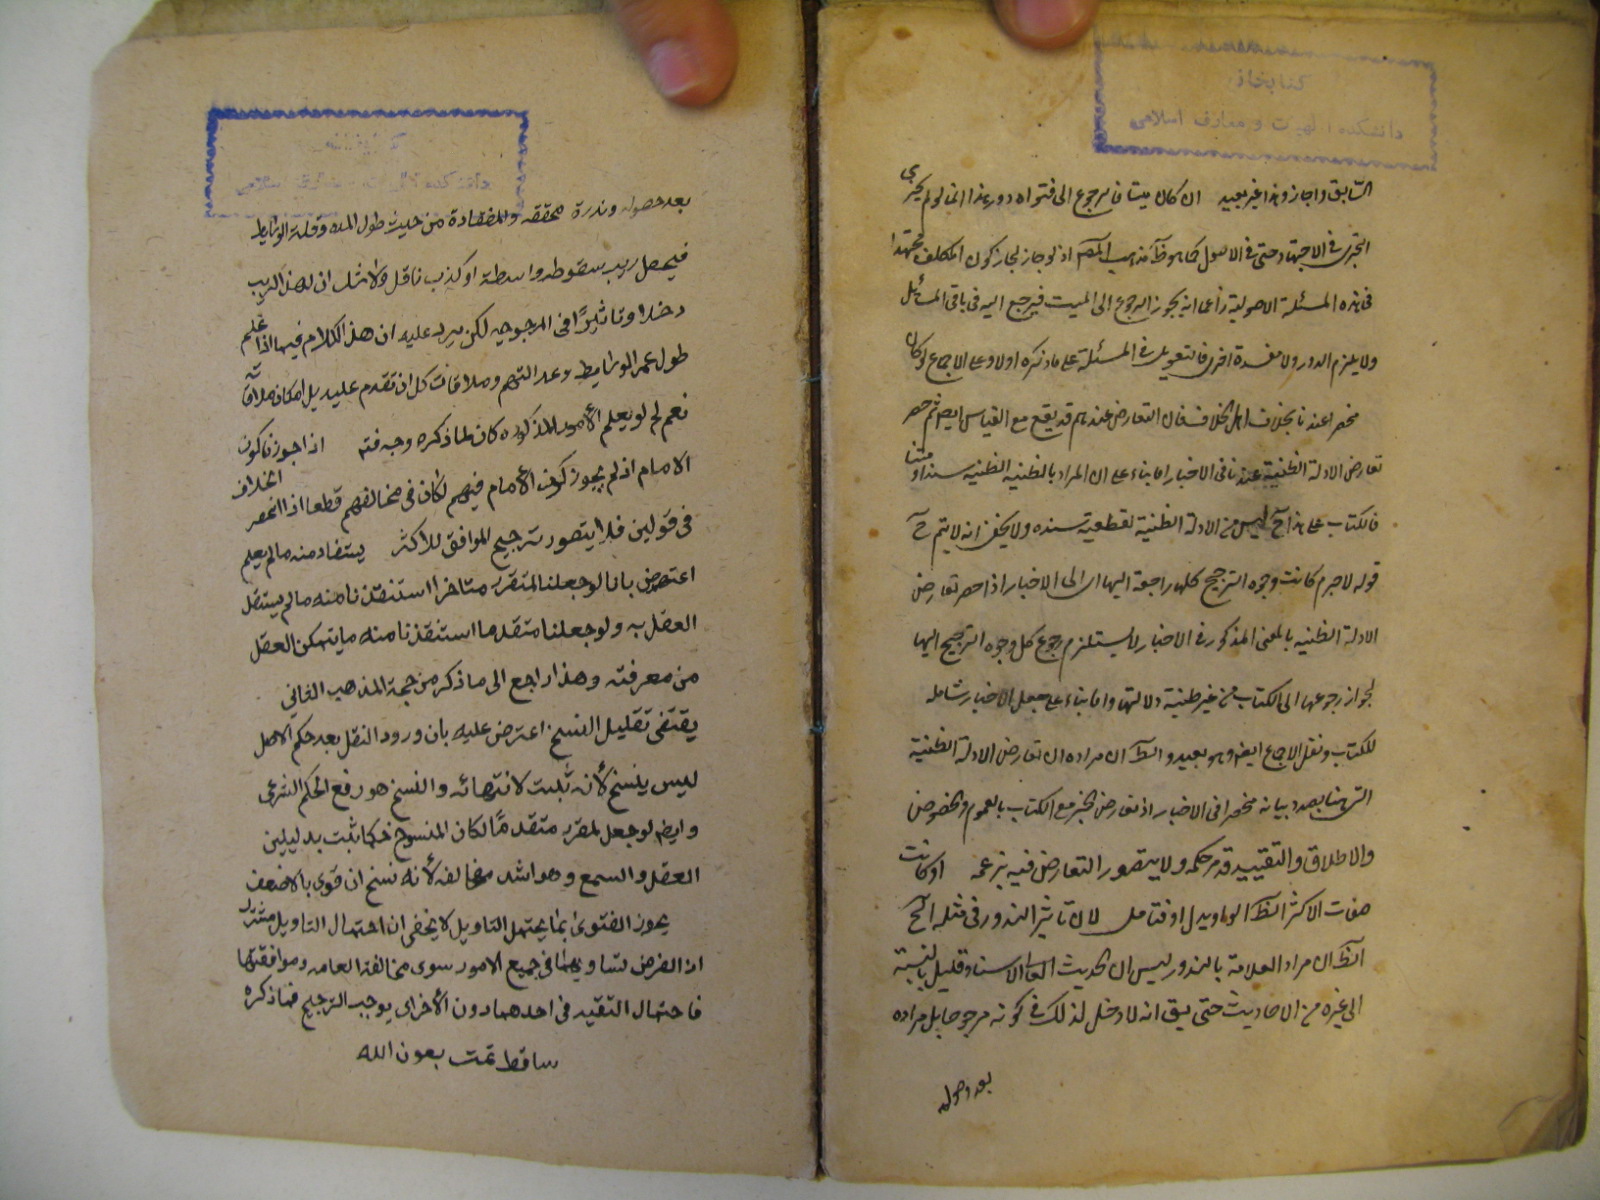 كتابخانه
دانشكده الهيات و معارف اسلامى
السابق واجاز وهذا غير بعيد الن كان ميتا فالرجوع الى فتواه دور هذا انما لو لم يجز
التجزى فى الاجتهاد حتى فى الاصول كما هو ظ مذهب المص اذ لو جاز لجاز كون المكلف مجتهدا
فى هذه المسئلة الاصولية زاعما انه يجوز الرجوع الى الميت فيرجع اليه فى باقى المسائل
ولا يلزم الدور ولا مفسدة اخرى فالتعويل فى المسئلة على ما ذكره اولا وعلى الاجماع لو كان
منحصر عندنا بخلاف اهل الخلاف فان التعارض عندهم قد يقع مع القياس ايض ثم حصر
تعارض الادلة الظنية عندنا فى الاخبار اما بناء على ان المراد بالظنيه الظنيه سندا ومتنا
فالكتاب على هذا ح ليس من الادلة الظنية لقطعية سنده ولا يخفى انه لا يتم ح
قوله لاجرم كانت وجوه الترجيح كلها راجعة اليها اى الى الاخبار اذا حصر تعارض
الادلة الظنيه بالمعنى المذكور فى الاخبار لا يستلزم رجوع كل وجوه الترجيح اليها
لجواز رجوعها الى الكتاب من غير ظنية دلالتها واما بناء على جعل الاخبار شاملة
للكتاب ونقل الاجماع ايض وهو بعيد والظ ان مراده ان تعارض الادلة الظنية
التى هنا بصدد بيانه منحصر فى الاخبار اذ تعارض الخبر مع الكتاب بالعموم والخصوص
والاطلاق والتقييد قد مر حكمه ولا يتصور التعارض فيه بزعمه او كانت
صفات الاكثر الظ الواو بدل او فتامل لان تاثير الندور فى مثله الخ
الظ ان مراد العلامة بالندور ليس ان الحديث العالى الاسناد قليل بالنسبة
الى غيره من الاحاديث حتى يق انه لا دخل لذلك فى كونه مرجوحا بل مراده
بعد حصوله
بعد حصوله وندرة تحققه وللمضادة من حيث طول المده وقلة الوسايط
فيحصل ريب سقوط واسطة او كذب ناقل ولا شك ان لهذا الريب
دخلا وتاثيرًا فى المرجوحيه لكن يرد عليه ان هذا الكلام فيما اذا علم
طول عمر الوسايط وعدالتهم وملاقات كل ان تقدم عليه بل امكان ملاقاته
نعم لم لو يعلم الأمور المذكوره كان لما ذكره وجه فته اذا جوزنا كون
الامام اذ لم يجوز كون الأمام فيهم لكان فى مخالفهم قطعا اذا انحصر الخلاف
فى قولين فلا يتصور ترجيح الموافق للاكثر يستفاد منه ما لم يعلم
اعترض بانا لو جعلنا المقرر متاخرا استنقذنا منه ما لم يستقل
العقل به ولو جعلنا متقدما استنقذنا منه ما يتمكن العقل
من معرفته وهذا راجع الى ما ذكر من حجة المذهب الثانى
يقتضى تقليل النسخ اعترض عليه بان ورود النقل بعد حكم الاصل
ليس ينسخ لأنه ثبت لانتهائه والنسخ هو رفع الحكم الشرعى
وايض لو جعل لمقرر متقدمًا لكان المنسوخ حكما ثبت بدليلين
العقل والسمع وهو اشد مخالفه لأنه نسخ ان قوى بالاضعف
يجوز الفتوى بما يحتمل التاويل لا يخفى ان احتمال التاويل مشترك
اذ الفرض تساويهما فى جميع الامور سوى مخالفة العامه وموافقتها
فاحتمال التقيه فى احدهما دون الأخرى يوجب الترجيح فما ذكره
ساقط تمت بعون الله